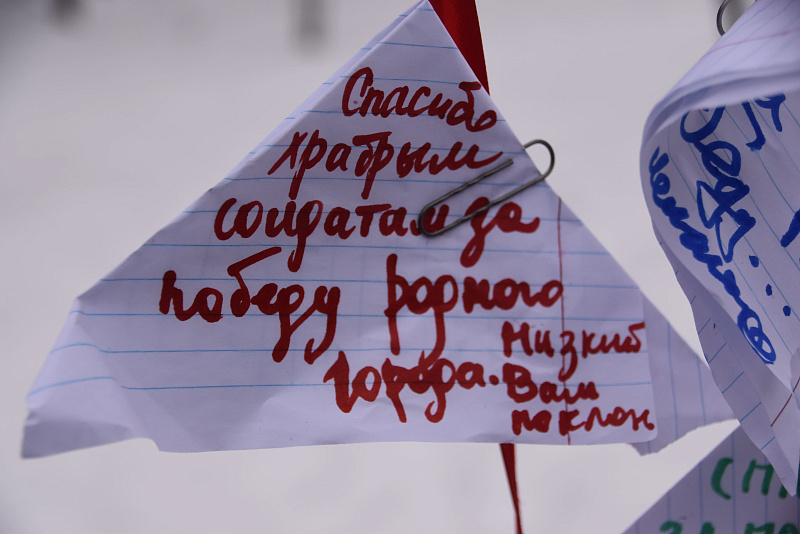 Спасибо
храбрым
солдатам за
победу родного
города.
Низкий
Вам
поклон